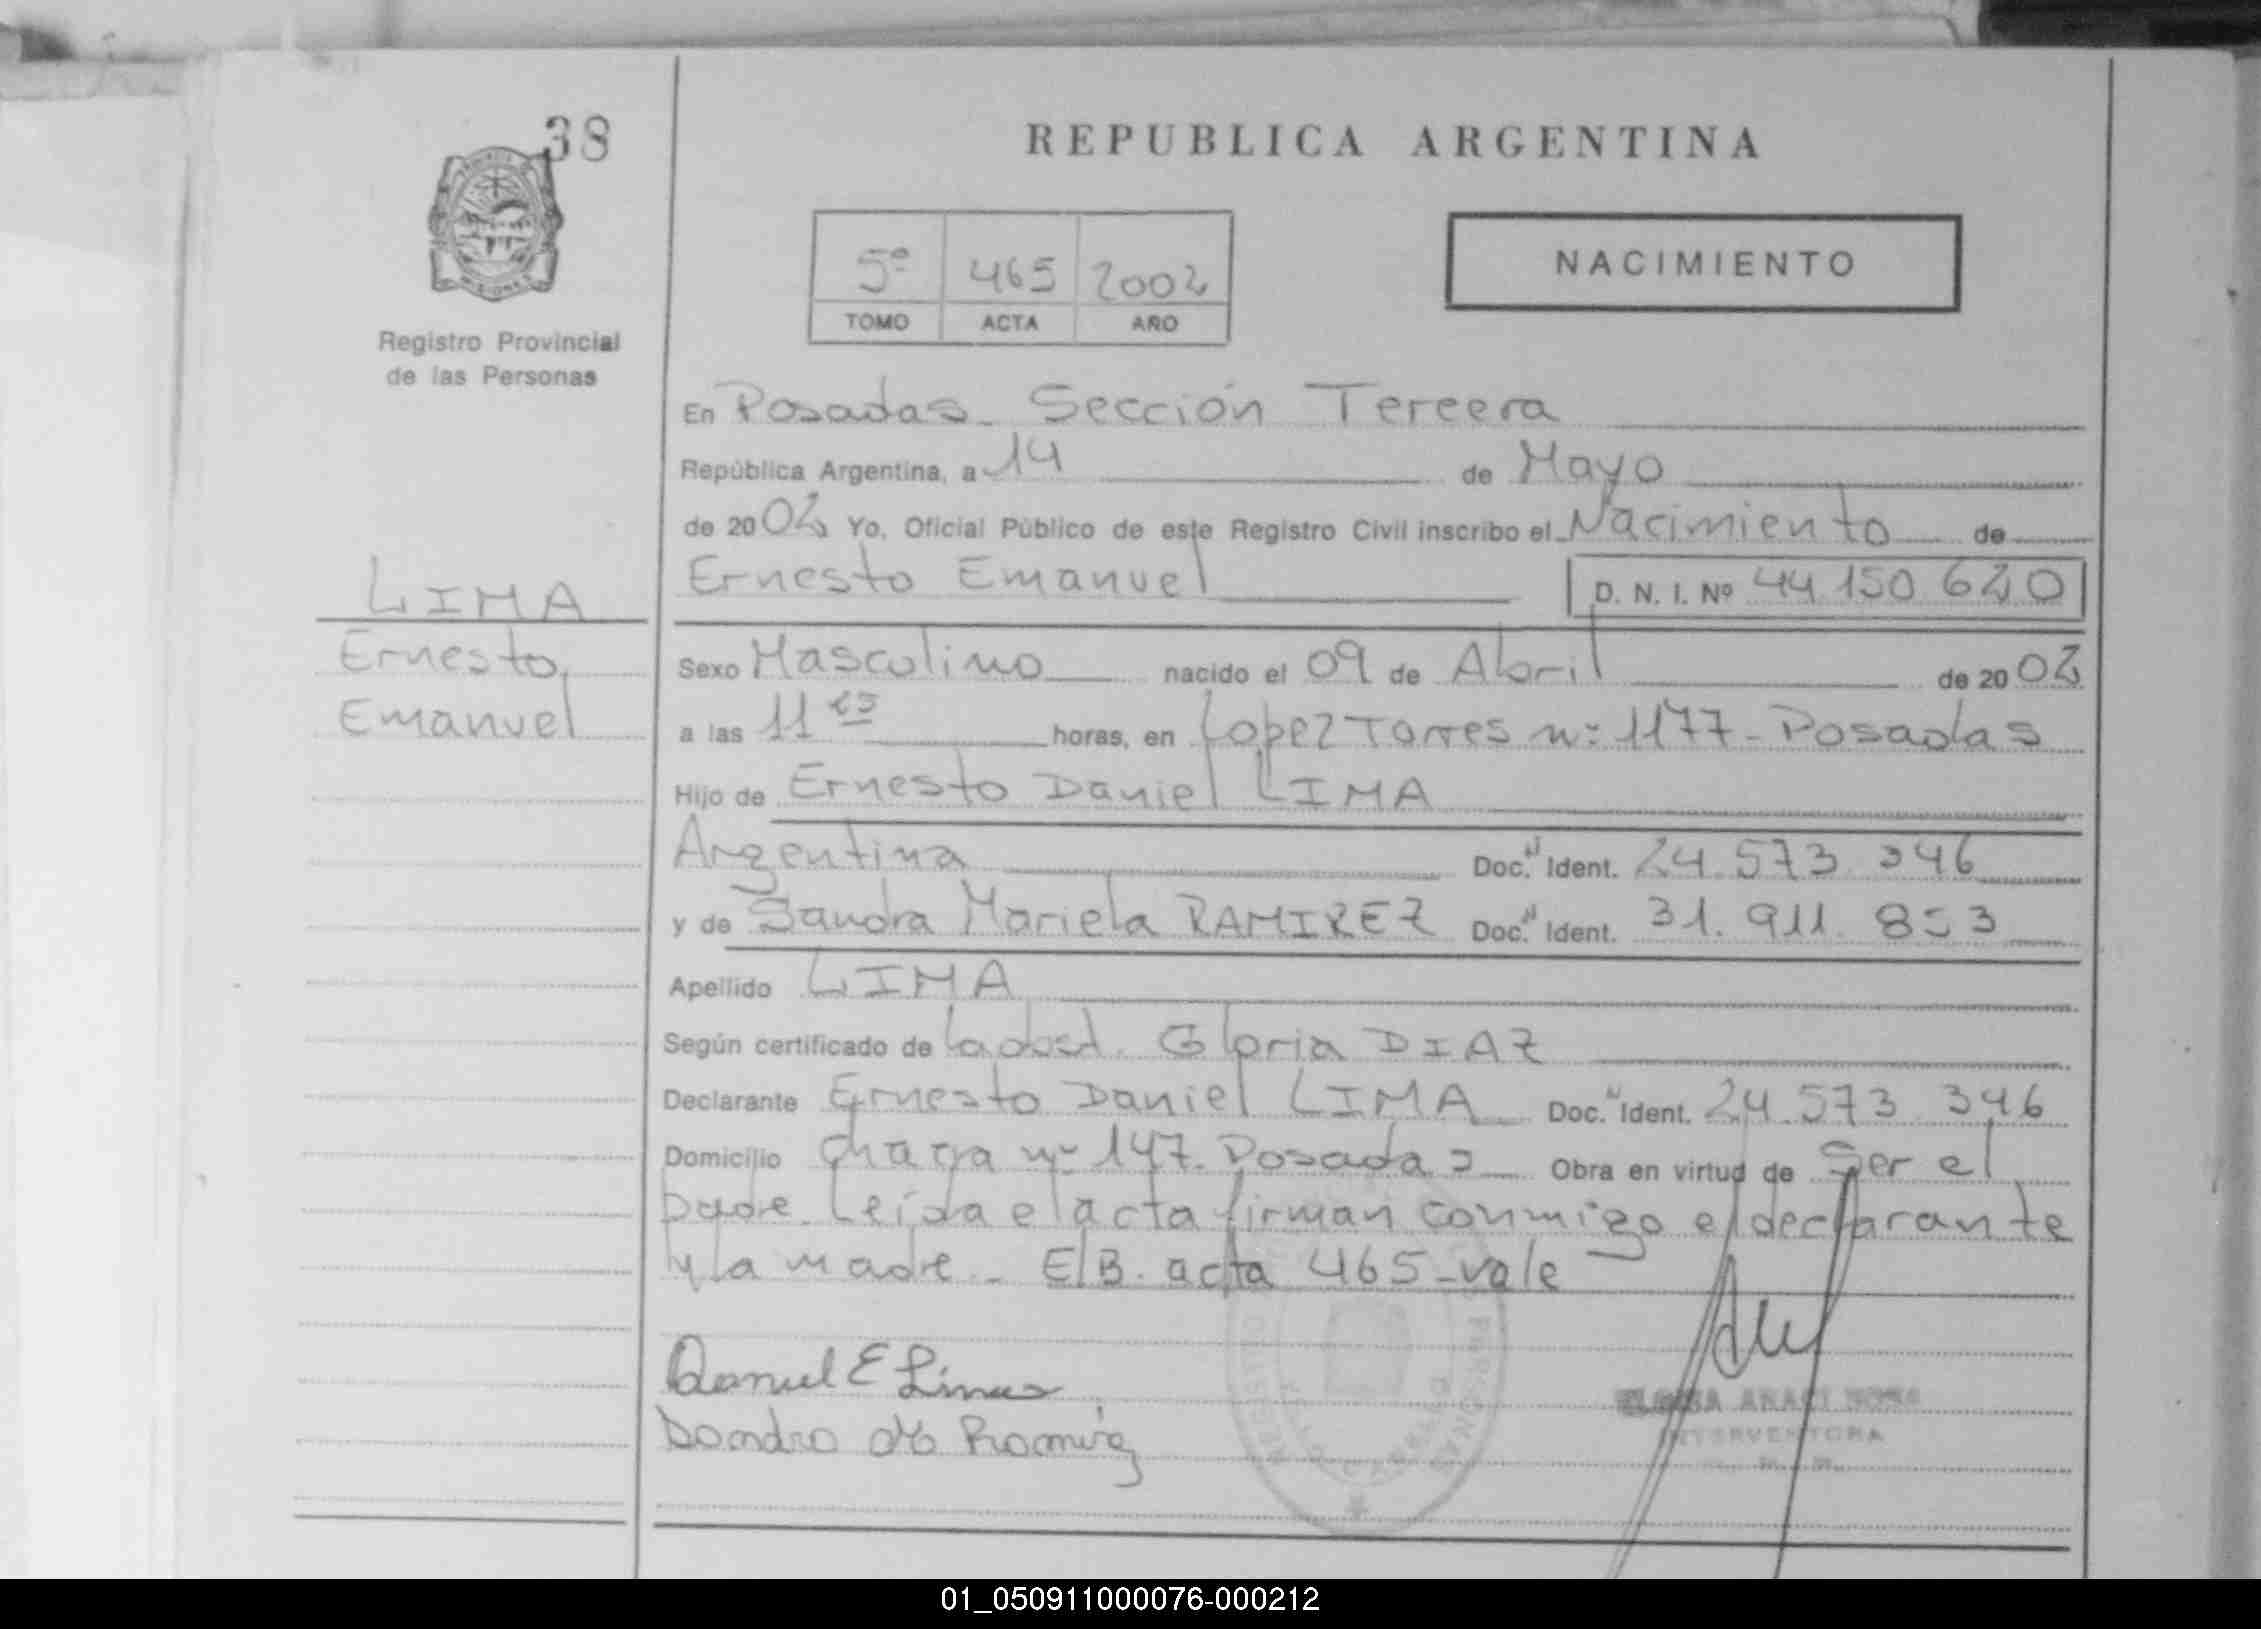 38
REPUBLICA ARGENTINA
5º 465 2002
TOMO ACTA AÑO
NACIMIENTO
Registro Provincial
de las Personas
En Posadas - Sección Tercera
República Argentina, a 14 de Mayo
de 2002 Yo, Oficial Público de este Registro Civil inscribo el Nacimiento de
Ernesto Emanuel D. N. I. Nº 44.150.620
LIMA
Ernesto
Emanuel
Sexo Masculino nacido el 09 de Abril de 2002
a las 11 horas, en Lopez Torres nº 1177 - Posadas
Hijo de Ernesto Daniel LIMA
Argentina Doc. Ident. 24.573.346
y de Sandra Mariela RAMIREZ Doc. Ident. 31.911.853
Apellido LIMA
Según certificado de la obst. Gloria DIAZ
Declarante Ernesto Daniel LIMA Doc. Ident. 24.573.346
Domicilio nº 147. Posadas Obra en virtud de Ser el
padre. Leída el acta firman conmigo el declarante
y la madre - E/B. acta 465 - vale
Daniel E Lima
Sandra M Ramirez
INTERVENTORA
01_050911000076-000212